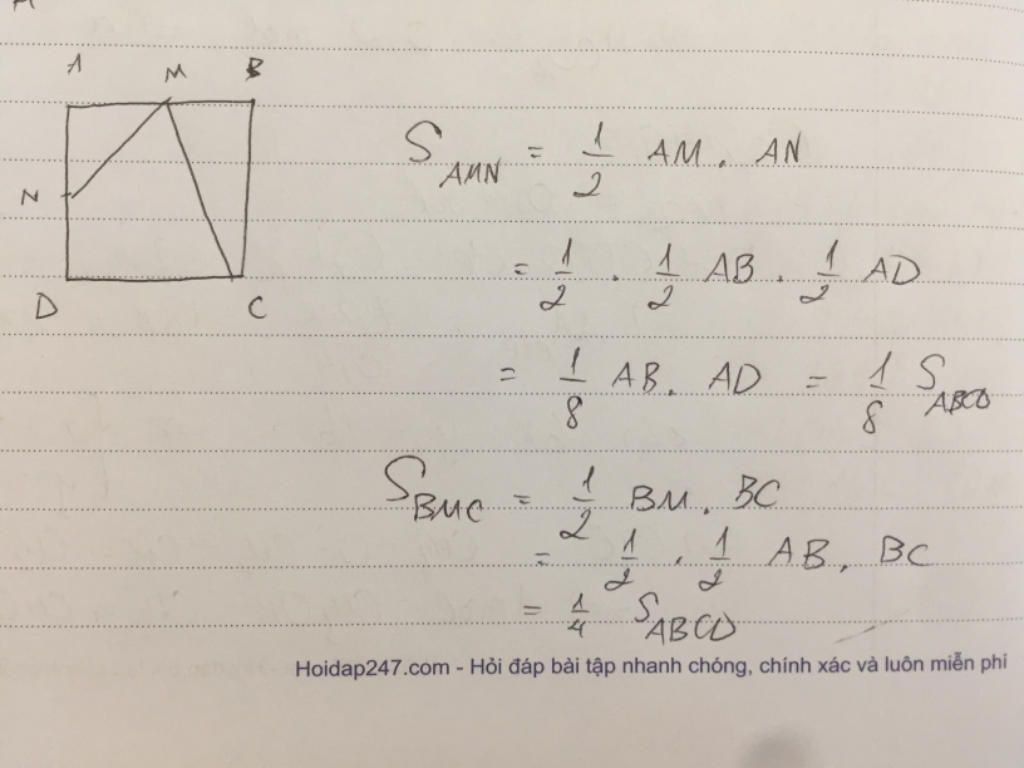 A M B
S_AMN = 1/2 AM . AN
N
= 1/2 . 1/2 AB . 1/2 AD
D C
= 1/8 AB . AD = 1/8 S_ABCD
S_BMC = 1/2 BM . BC
= 1/2 . 1/2 AB . BC
= 1/4 S_ABCD
Hoidap247.com - Hỏi đáp bài tập nhanh chóng, chính xác và luôn miễn phí